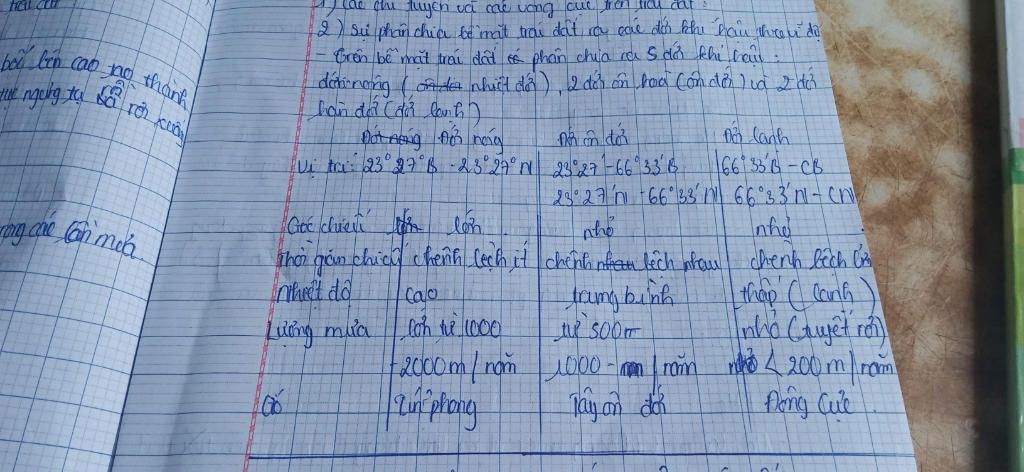 bốc lên cao nó thành
ngưng tụ rồi rơi xuống
1) Các chí tuyến và các vòng cực trên trái đất:
2) Sự phân chia bề mặt trái đất ra các đới khí hậu theo vĩ độ
- trên bề mặt trái đất phân chia ra 5 đới khí hậu:
đới nóng (nhiệt đới), 2 đới ôn hoà (ôn đới) và 2 đới
hàn đới (đới lạnh)
Đới nóng Đới nóng Đới ôn đới Đới lạnh
Vị trí: 23°27'B - 23°27'N 23°27'-66°33'B 66°33'B - CB
23°27'N -66°33'N 66°33'N - CN
Góc chiếu lớn nhỏ nhỏ
Thời gian chiếu chênh lệch ít chênh lệch nhau chênh lệch lớn
Nhiệt độ cao trung bình thấp (lạnh)
Lượng mưa lớn từ 1000 từ 500m nhỏ (tuyết rơi)
-2000m/năm 1000 - /năm <200m/năm
Gió Tín phong Tây ôn đới Đông Cực